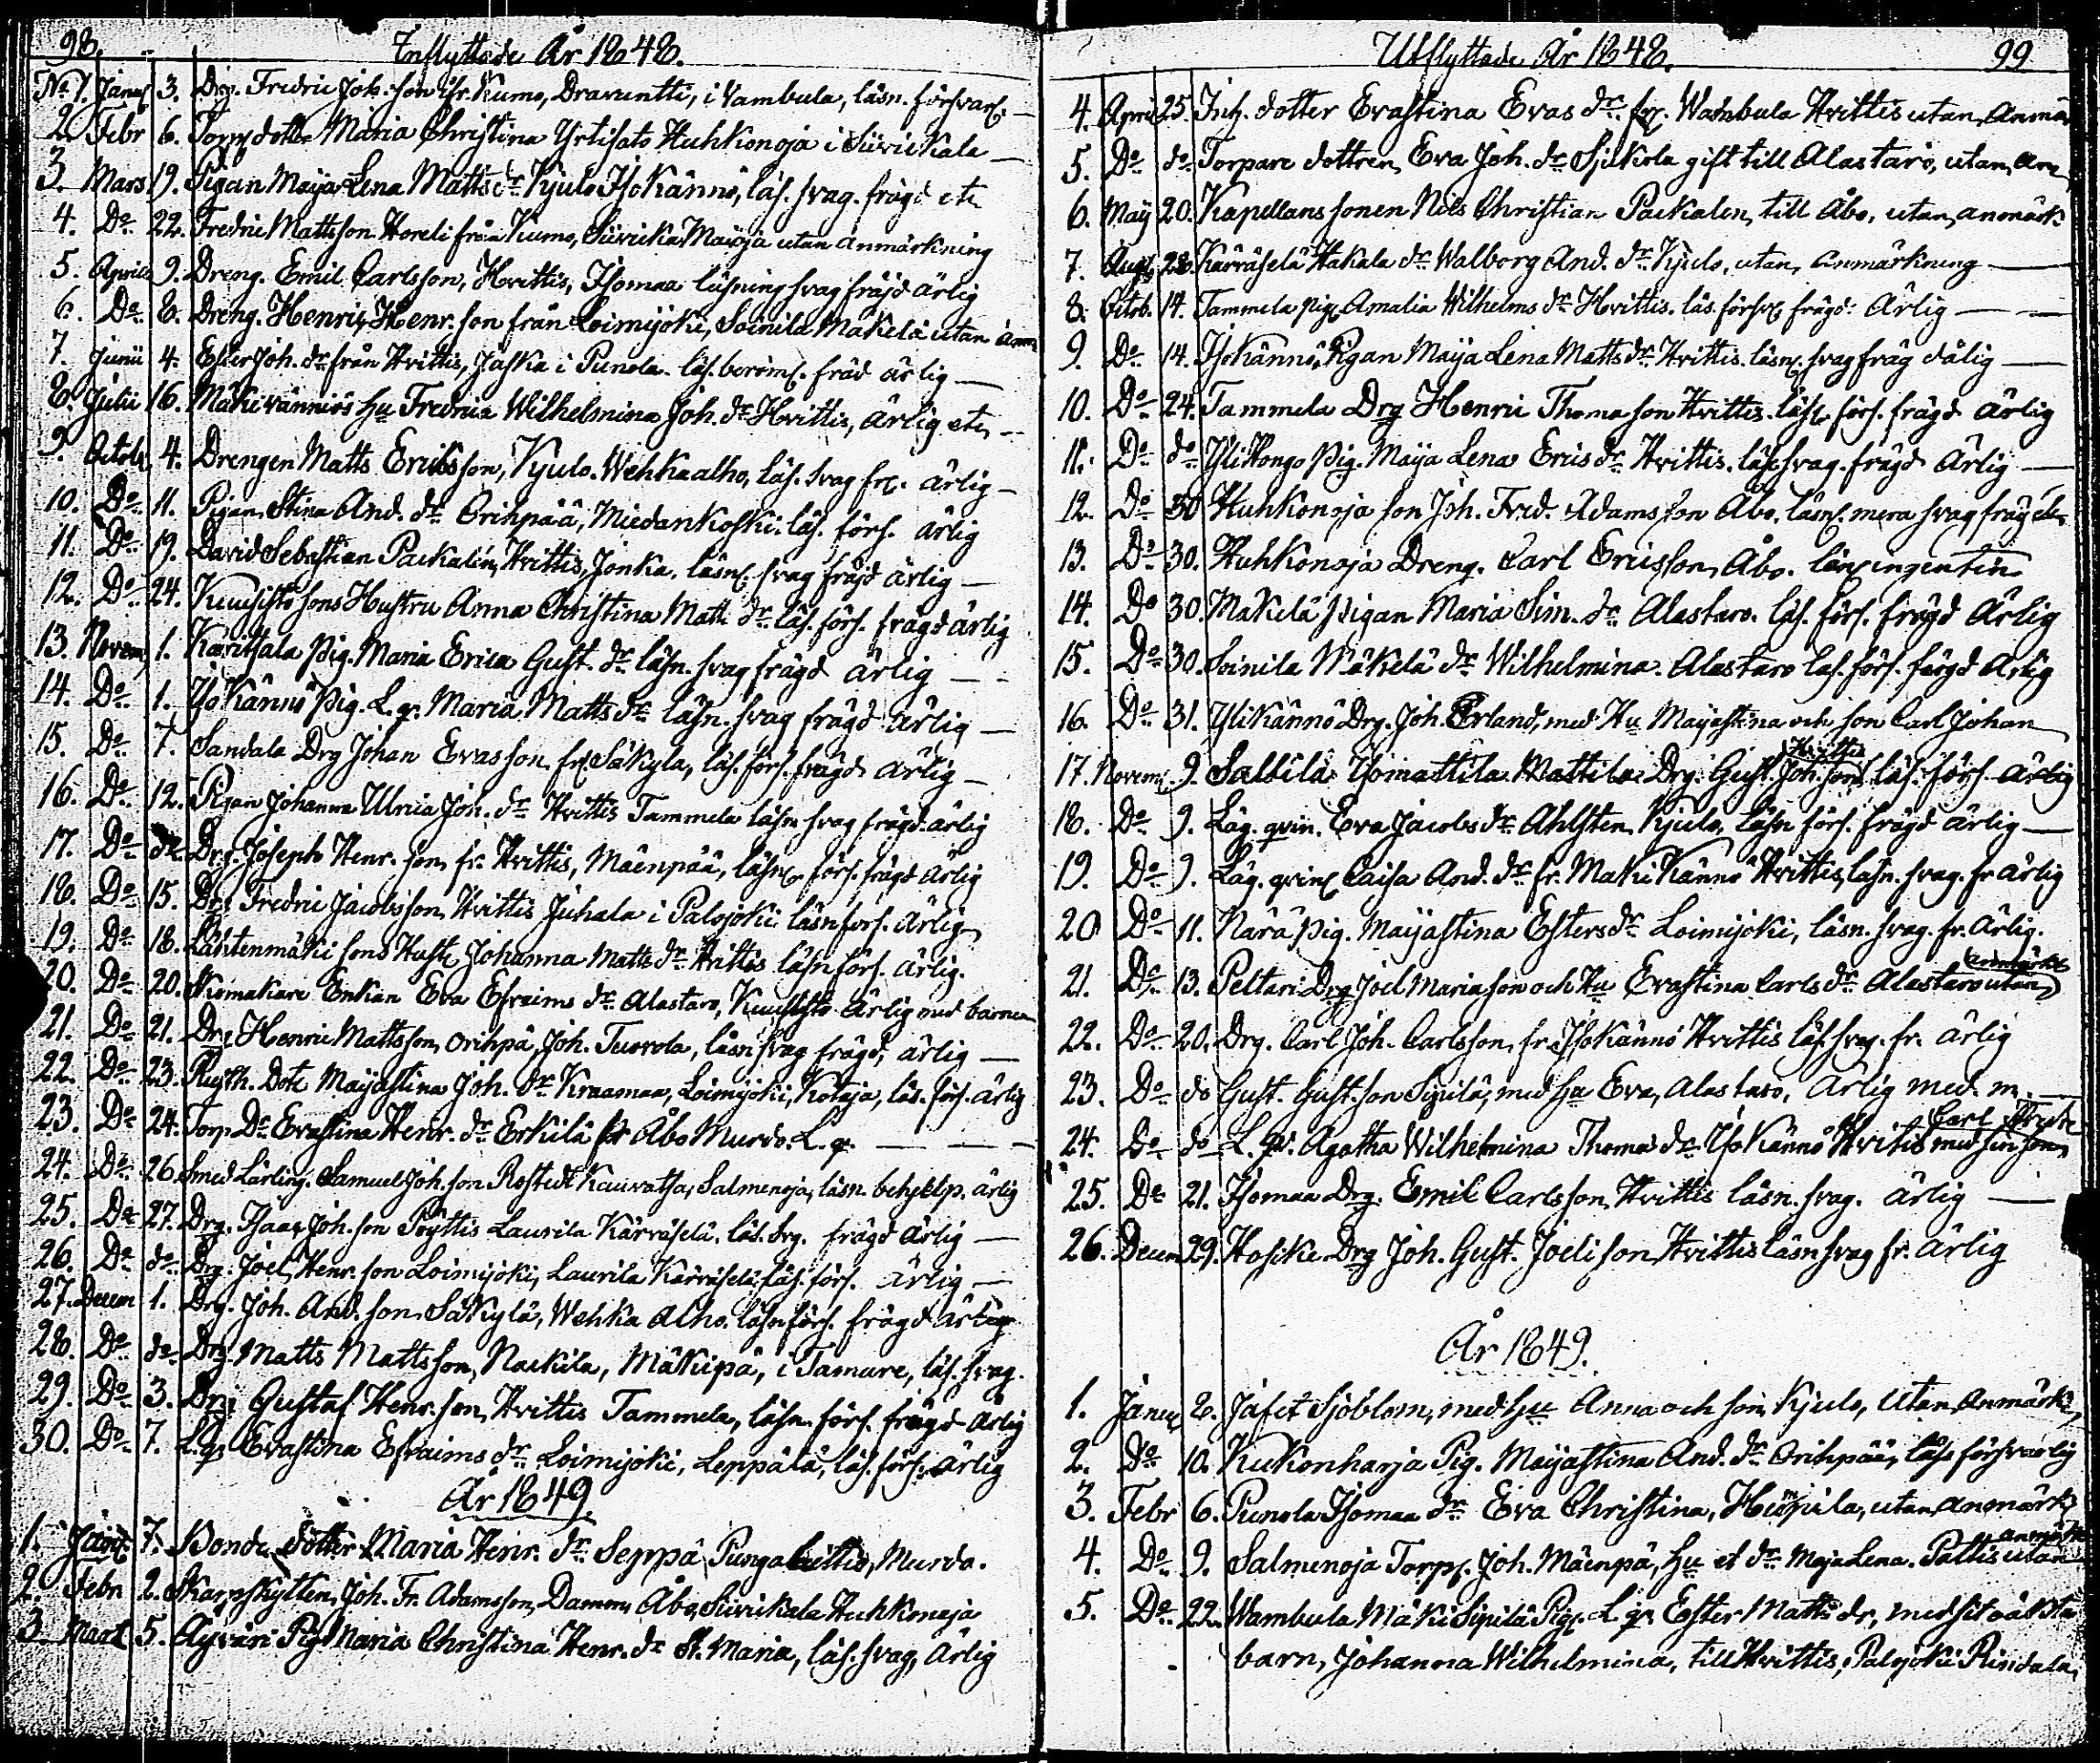 98.
Inflyttade År 1848.
No 1. Janu 3. Drg. Fredric Joh. son fr. Kumo, Dravuntti, i Vambula, läsn. försvarl.
2. Febr 6. Torp dotter Maria Christina Huhkonoja i Suvickala
3. Mars 19. Pigan Maija Lena Matts dr Kjulo Isokännö, läs. svag. frägd etc
4. Do 22. Fredric Mattsson Horeli från Kumo, Maioja utan anmärkning
5. Aprill 9. Dreng. Emil Carlsson, Hvittis, Isomaa läsning svag fräjd ärlig
6. Do 8. Dreng. Henric Henr. son från Loimijoki, Soinila Mäkelä utan anm
7. Junii 4. Ester Joh. dr från Hvittis, Jaska i Punola. läs. beröml. fräd ärlig
8. Julii 16. Mäkivänniös Hu Fredrica Wilhelmina Joh. dr Hvittis, ärlig etc
9. Octob. 4. Drengen Matts Ericsson, Kjulo. Wehkaalho, läs. svag fr. ärlig
10. Do 11. Pigan Stina And. dr Orihpää, Miedankoski. läs. förs. ärlig
11. Do 19. David Sebastian Packalén, Hvittis, Jonka. läsn. svag fräjd ärlig
12. Do 24. Kuusisto sons Hustru Anna Christina Matts dr läs. förs. frägd ärlig
13. Novem 1. Karitsala Pig. Maria Erica Gust. dr läsn. svag frägd ärlig
14. Do 1. Iso Kännö Pig. L. qv. Maria Matts dr läsn. svag frägd ärlig
15. Do 7. Sandala Drg Johan Evasson fr. Säkyla, läs. förs. frägd ärlig
16. Do 12. Pigan Johanna Ulrica Joh. dr Hvittis Tammela läsn svag frägd ärlig
17. Do Drg. Joseph Henr. son fr. Hvittis, Mäenpää, läsn. förs. frägd ärlig
18. Do 15. Drg Fredric Jacobsson Hvittis Juhala i Palojoki läsn förs. ärlig
19. Do 18. Lähtenmäki sons Hust. Johanna Matts dr Hvittis läsn förs. ärlig.
20. Do 20. Skomakare Enkan Eva Efraims dr Alastaro, Kuusisto ärlig med barnen
21. Do 21. Drg Henric Mattsson, Orihpä, Joh. Tuorola, läsn svag frägd, ärlig
22. Do 23. Ryth. Dott. Maijastina Joh. dr Kraasmaa, Loimijoki, Kotaja, läs. förs. ärlig
23. Do 24. Torp. Dr Evastina Henr. dr Erkilä fr Åbo Murdo. L. qv.
24. Do 26 Smed Lärling. Samuel Joh. son Rostedt Kauvatsa, Salmenoja, läsn. behjelp. ärlig
25. Do 27. Drg. Isaac Joh. son Pöyttis Laurila Kärräselä. läs. svg. frägd ärlig
26. Do do Drg. Joel Henr. son Loimijoki, Laurila Kärräselä läs. förs. ärlig
27. Decem 1. Drg. Joh. And. son Säkylä, Wehka alho. läsn förs. frägd ärlig
28. Do do Drg. Matts Mattsson, Nackila, Mäkipä, i Tamare, läs. svag.
29. Do 3. Drg Gustaf Henr. son, Hvittis Tammela, läsn. förs. frägd ärlig
30. Do 7. L. qv Evastina Efraims dr Loimijoki, Leppälä, läs. förs. ärlig
År 1849.
1. 7. Bonde dotter Maria Henr. dr Seppä Punga Murdo.
2. Febr 2. Skarpskytten, Joh. Fr. Adamsson, Damm, Åbo, Suvickala Huhkonoja
3 Mart 5. Äyväri Pig Maria Christina Henr. dr St. Maria, läs. svag, ärlig
Utflyttade År 1848.
99
4. April 25. Inh. dotter Evastina Evas dr fr. Wambula Hvittis utan Anmär
5. Do do Torpare dottren Eva Joh. dr Sjukola gift till Alastaro, utan, an
6. Maij 20. Kapellans sonen Nils Christian Packalen, till Åbo, utan, anmärk
7. Aug. 28. Kärräselä Hakala dr Walborg And. dr Kjulo, utan, anmärkning
8. Octob. 14. Tammela pig Amalia Wilhelms dr Hvittis. läs. försv. frägd: Ärlig
9. Do 14. Isokännö Pigan Maija Lena Matts dr Hvittis. läsn. svag fräg dålig
10. Do 24. Tammela Drg Henric Thomasson Hvittis läsn förs. frägd ärlig
11. Do do Ylihongo Pig. Maija Lena Erics dr Hvittis. läs svag. frägd ärlig
12. Do 30 Huhkonoja son Joh. Fred. Adamsson Åbo, läsn. mera svag fräg etc
13. Do 30. Huhkonoja Dreng. Carl Ericsson, Åbo. läsn ingenting
14. Do 30. Mäkelä Pigan Maria Sim. dr Alastaro. läs. förs. frägd ärlig
15. Do 30. Soinila Mäkelä dr Wilhelmina. Alastaro läs. förs. färgd ärlig
16. Do 31. Ylikännö Drg. Joh. Erland, med Hu Maijastina och son Carl Johan
17. Novem. 9. Sallila Isomattila Mattila Drg. Gust. Joh. son Hvittis läs. förs. ärlig
18. Do 9. Läg. qvin. Eva Jacobs dr Ahlsten Kjulo, läsn förs. frägd ärlig
19. Do 9. Läg. qvin. Caisa And. dr fr. Mäki Kännö Hvittis, läsn. svag. fr ärlig
20 Do 11. Närä Pig. Maijastina Esters dr Loimijoki, läsn. svag. fr. ärlig.
21. Do 13. Peltari Drg Joel Mariason och Hu Evastina Carls dr Alastaro utan anmärkn
22. Do 20. Drg. Carl Joh. Carlsson, fr. Isokännö Hvittis läs. svag. fr. ärlig
23. Do do Gust. Gust. son Sipilä, med Hu Eva, Alastaro, Ärlig med m.
24. Do do L. qv. Agatha Wilhelmina Thoma dr Iso Kännö Hvittis med sin son Carl
25. Do 21. Isomaa Drg. Emil Carlsson, Hvittis läsn. svag. ärlig
26. Decem 29. Hosike Drg Joh. Gust. Joelison, Hvittis läsn svag fr. ärlig
År 1849.
1. Janu 2. Jafet Sjöblom, med Hu Anna och son, Kjulo, utan Anmärk
2. Do 10. Kukonharja Pig. Maijastina And. dr Orihpää, läsn försvarlig
3. Febr 6. Punola Isomaa dr Eva Christina, Humpila, utan anmärk
4. Do 9. Salmenoja Torp. Joh. Mäenpä, Hu et dr Maja Lena. Pattis utan anmärk
5. Do 22. Wambula Mäki Sipilä Pig. L. qv. Ester Matts dr, med sit oäkta
barn, Johanna Wilhelmina, till Hvittis, Palojoki